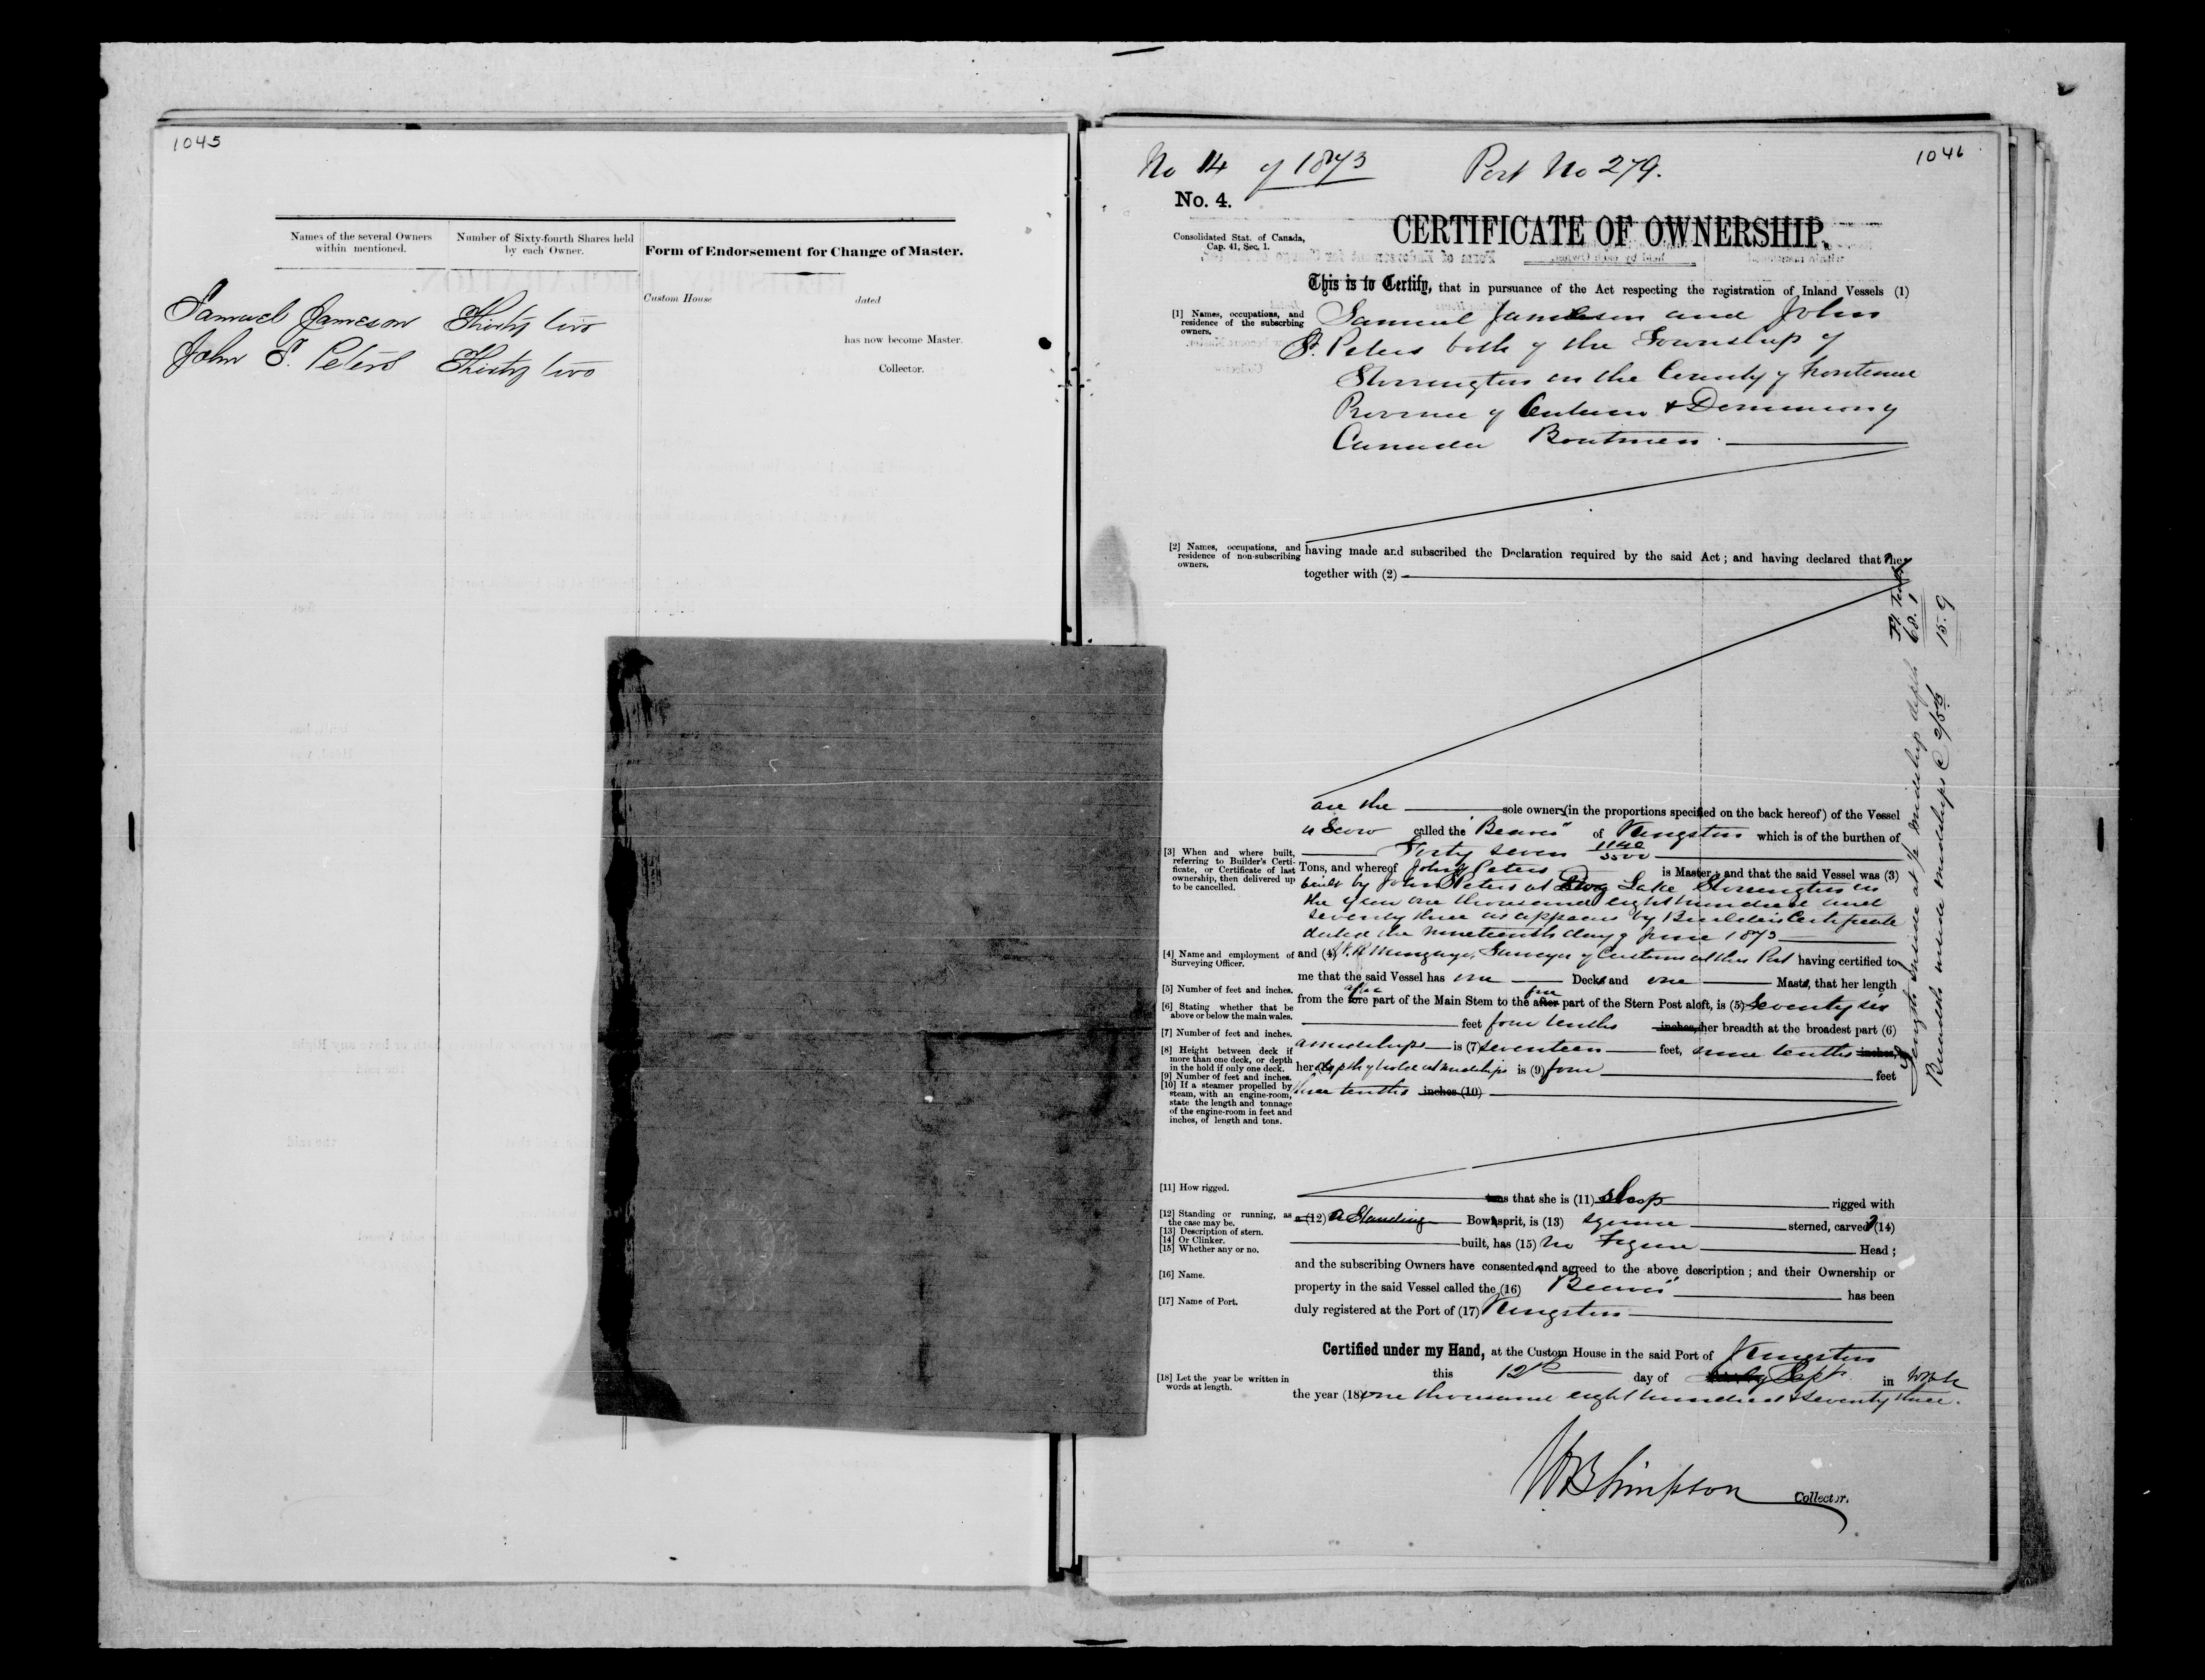 1045
Names of the several Owners
within mentioned.
Number of Sixty-fourth Shares held
by each Owner.
Form of Endorsement for Change of Master.
Custom House dated
has now become Master.
Collector.
Samuel Jameson Thirty two
John S. Peters Thirty two
1046
No 14 of 1873 Port No 279.
No. 4.
Consolidated Stat. of Canada,
Cap. 41, Sec. 1.
CERTIFICATE OF OWNERSHIP.
This is to Certify, that in pursuance of the Act respecting the registration of Inland Vessels (1)
[1] Names, occupations, and
residence of the subscrbing
owners.
Samuel Jameson and John
S. Peters both of the Township of
Storrington in the County of Frontenac
Province of Ontario & Dominion of
Canada Boatmen.
[2] Names, occupations, and
residence of non-subscribing
owners.
having made and subscribed the Declaration required by the said Act; and having declared that they
together with (2)
are the sole owners (in the proportions specified on the back hereof) of the Vessel
a Scow called the "Beaver" of Kingston which is of the burthen of
Forty seven 1140/3500
[3] When and where built,
referring to Builder's Certi-
ficate, or Certificate of last
ownership, then delivered up
to be cancelled.
Tons, and whereof John S Peters is Master; and that the said Vessel was (3)
built by John S Peters at Dog Lake Storrington in
the year one thousand eight hundred and
seventy three as appears by Builders Certificate
dated the nineteenth day of June 1873
[4] Name and employment of
Surveying Officer.
and (4) Surveyor of Customs at this Port having certified to
me that the said Vessel has one Decks and one Masts, that her length
[5] Number of feet and inches.
after fore
from the fore part of the Main Stem to the after part of the Stern Post aloft, is (5) Seventy six
[6] Stating whether that be
above or below the main wales.
feet four tenths inches, her breadth at the broadest part (6)
[7] Number of feet and inches.
amidships is (7) seventeen feet, nine tenths inches,
[8] Height between deck if
more than one deck, or depth
in the hold if only one deck.
her depth of hold at midships is (9) four feet
[9] Number of feet and inches.
three tenths inches (10)
[10] If a steamer propelled by
steam, with an engine-room,
state the length and tonnage
of the engine-room in feet and
inches, of length and tons.
[11] How rigged.
tons that she is (11) sloop rigged with
[12] Standing or running, as
the case may be.
a (12) a Standing Bowsprit, is (13) square sterned, carvel (14)
[13] Description of stern.
[14] Or Clinker.
[15] Whether any or no.
built, has (15) no Figure Head;
and the subscribing Owners have consented and agreed to the above description; and their Ownership or
[16] Name.
property in the said Vessel called the (16) "Beaver" has been
[17] Name of Port.
duly registered at the Port of (17) Kingston
Certified under my Hand, at the Custom House in the said Port of Kingston
this 12th day of Sept. in
[18] Let the year be written in
words at length.
the year (18) one thousand eight hundred & seventy three.
W B Simpson Collector.
Length inside at ½ midship depth 68.1
Breadth inside midships @ 2/5th 15.9